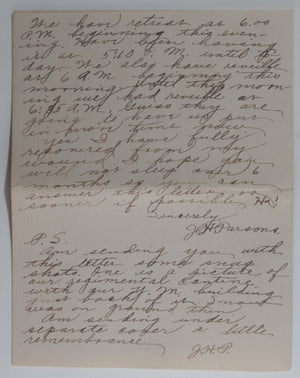 We have retreat at 6.00
P.M. beginning this even-
ing. Have been having
it at 5.40 P.M. until to
day. We also have reveille
at 6 A.M. beginning this
morning. Until this morn
ing we had reveille at
6.45 A.M. Guess they are
going to have us put
in more time now.
Yes I have fully
recovered from my
wound. I hope you
will not sleep over 6
months so you can
answer this letter or
sooner if possible Ha!
Sincerely,
J.H. Parsons.
P.S.
Am sending you with
this letter some snap
shots. One is a picture of
our regimental canteen
with our Y.M. building
just back of it. Snow
was on ground then.
Am sending under
separate cover a little
remembrance.
J.H.P.